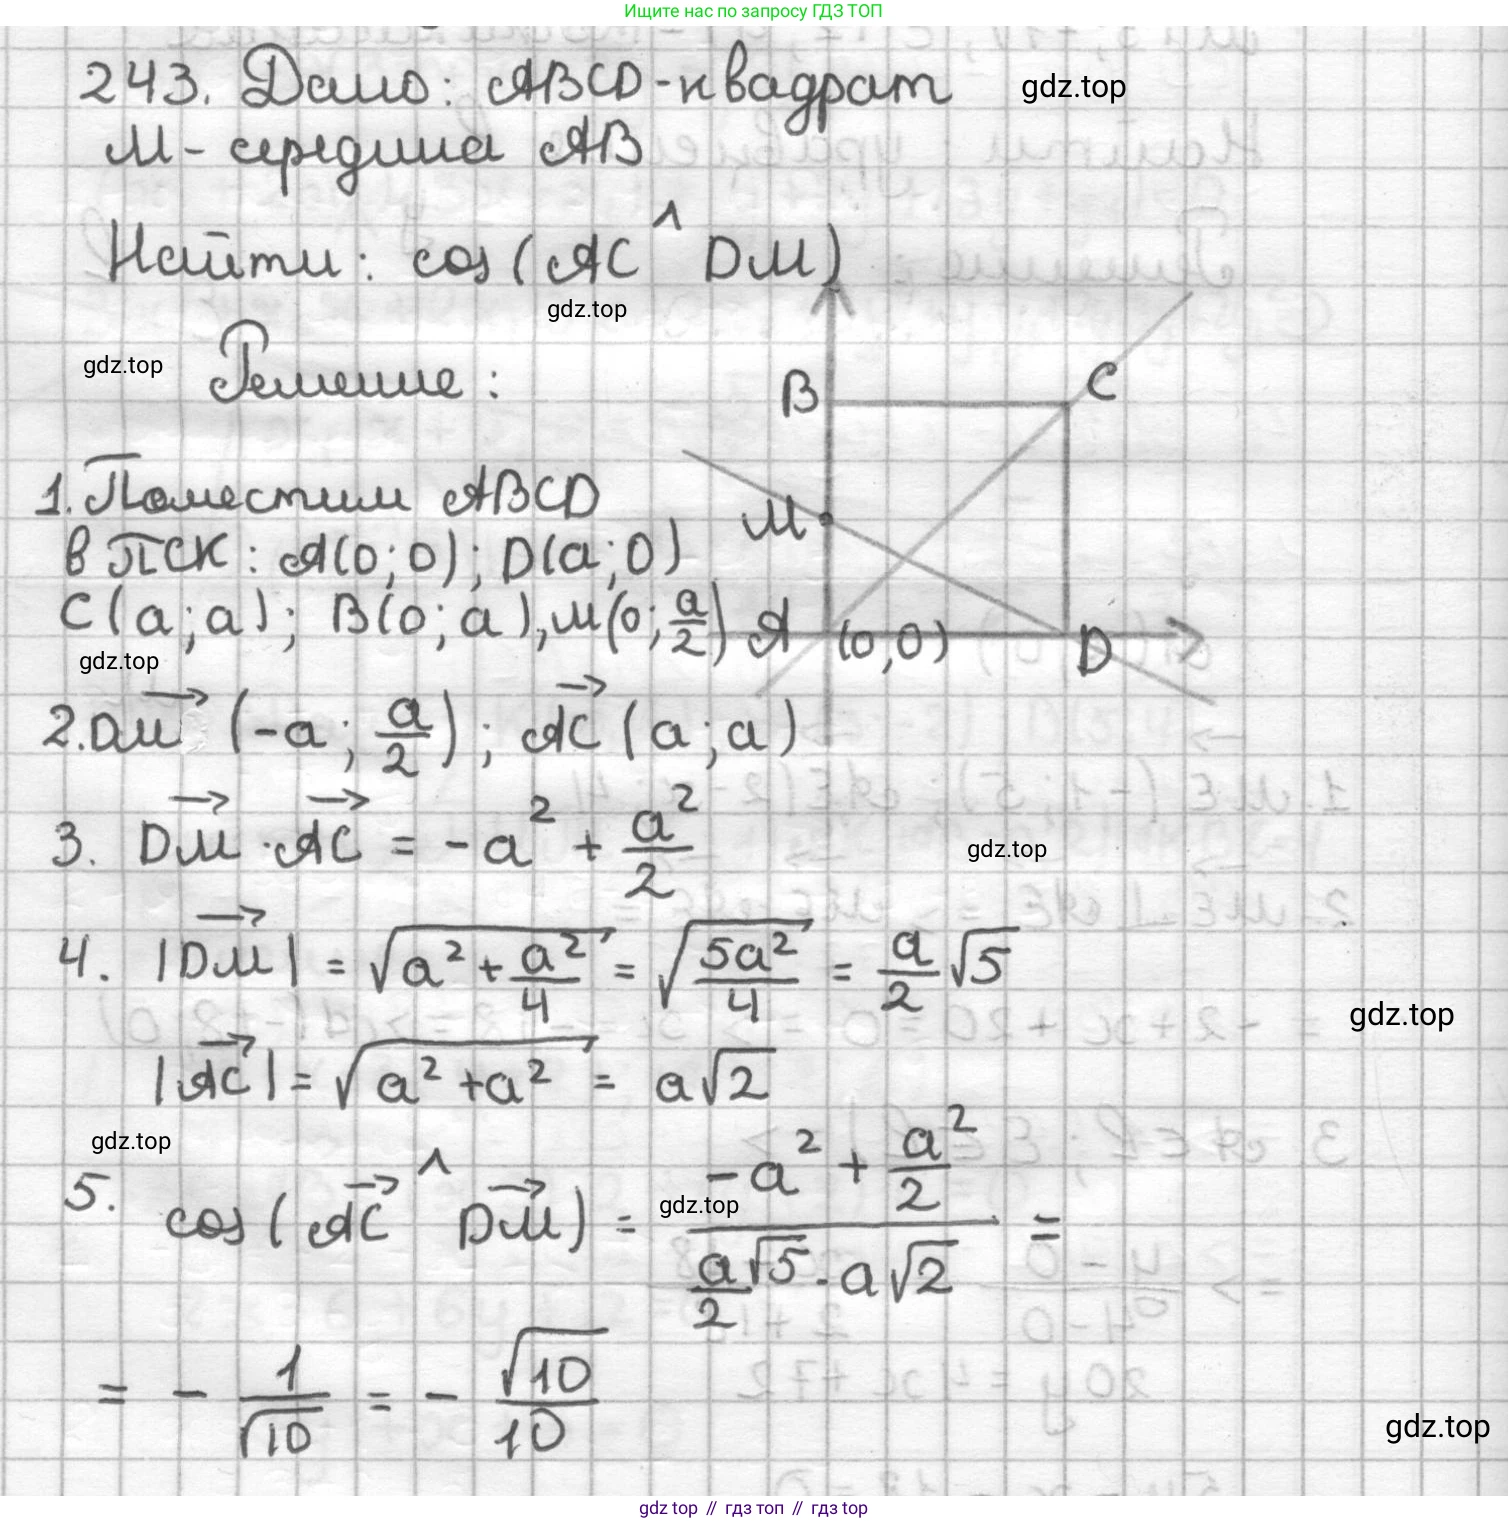 Ищите нас по запросу ГДЗ ТОП
243. Дано: ABCD-квадрат
gdz.top
M- середина AB
Найти: cos(AC ^ DM)
gdz.top
gdz.top
Решение:
B
C
M
A (0,0)
D
1. Поместим ABCD
в ПСК: A(0;0); D(a;0)
C(a;a); B(0;a), M(0; a/2)
gdz.top
2. DM→ (-a; a/2); AC→ (a;a)
3. DM→ · AC→ = -a² + a²/2
gdz.top
4. |DM→| = √(a² + a²/4) = √(5a²/4) = a/2 √5
gdz.top
|AC→| = √(a² + a²) = a√2
gdz.top
5. cos(AC→ ^ DM→) = (-a² + a²/2)/(a/2 √5 · a√2) =
gdz.top
= - 1/√10 = - √10/10
gdz.top
gdz top // гдз топ // гдз top